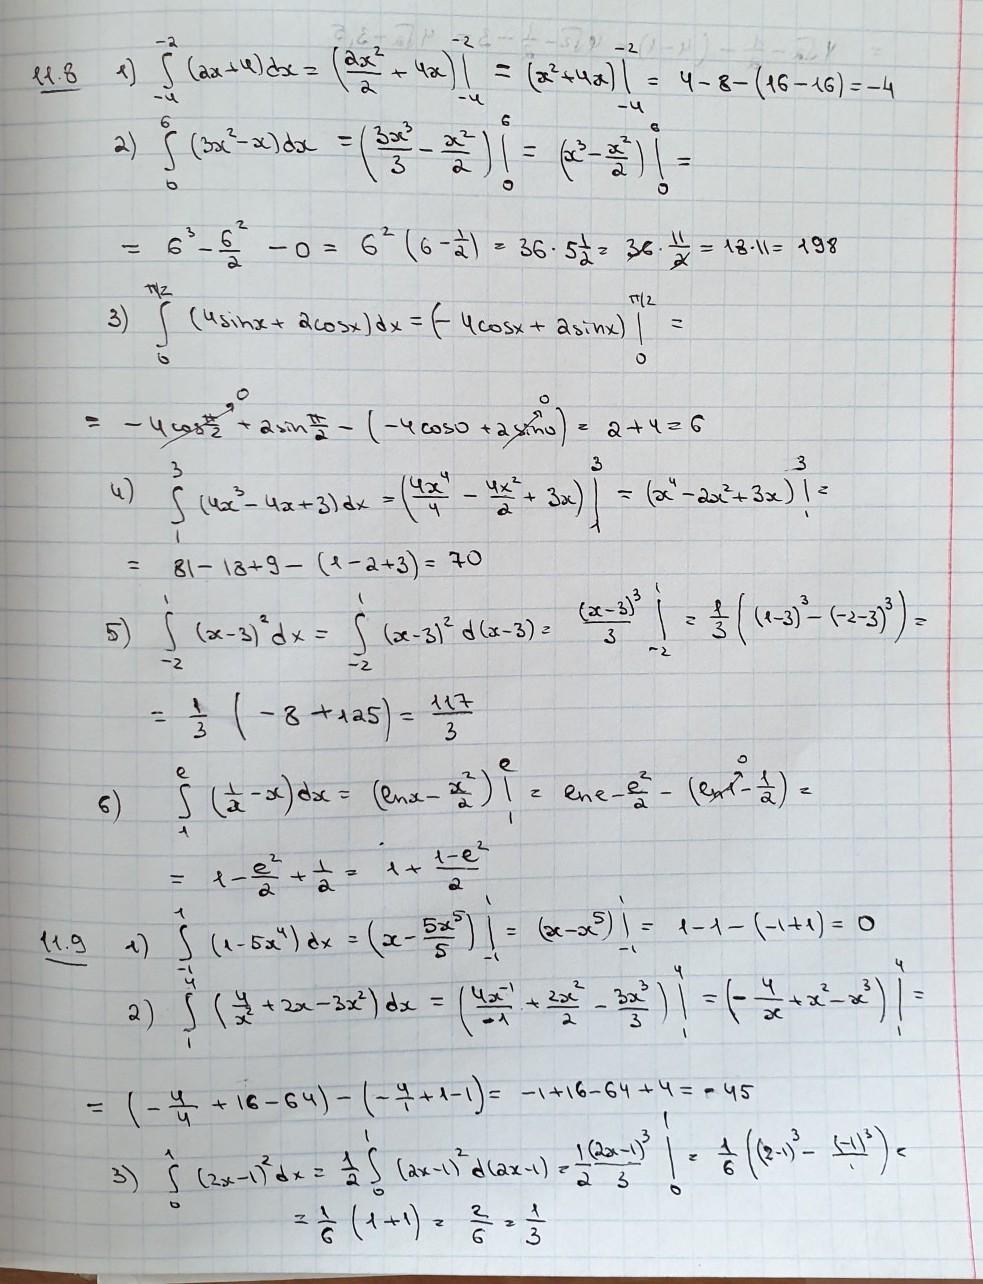 11.8 1) ∫_{-4}^{-2} (2x+4)dx = (2x²/2 + 4x)|_{-4}^{-2} = (x²+4x)|_{-4}^{-2} = 4-8-(16-16) = -4
2) ∫_{0}^{6} (3x²-x)dx = (3x³/3 - x²/2)|_{0}^{6} = (x³ - x²/2)|_{0}^{6} =
= 6³ - 6²/2 - 0 = 6² (6 - 1/2) = 36 · 5 1/2 = 36 · 11/2 = 18·11 = 198
3) ∫_{0}^{π/2} (4sinx + 2cosx)dx = (-4cosx + 2sinx)|_{0}^{π/2} =
= -4cos π/2 ↗0 + 2sin π/2 - (-4cos0 + 2sin0 ↗0) = 2+4 = 6
4) ∫_{1}^{3} (4x³-4x+3)dx = (4x⁴/4 - 4x²/2 + 3x)|_{1}^{3} = (x⁴-2x²+3x)|_{1}^{3} =
= 81-18+9-(1-2+3) = 70
5) ∫_{-2}^{1} (x-3)²dx = ∫_{-2}^{1} (x-3)² d(x-3) = (x-3)³/3 |_{-2}^{1} = 1/3 ((1-3)³-(-2-3)³) =
= 1/3 (-8+125) = 117/3
6) ∫_{1}^{e} (1/x - x)dx = (lnx - x²/2)|_{1}^{e} = lne - e²/2 - (ln1 ↗0 - 1/2) =
= 1 - e²/2 + 1/2 = 1 + (1-e²)/2
11.9 1) ∫_{-1}^{1} (1-5x⁴)dx = (x - 5x⁵/5)|_{-1}^{1} = (x-x⁵)|_{-1}^{1} = 1-1-(-1+1) = 0
2) ∫_{1}^{4} (4/x² + 2x-3x²)dx = (4x⁻¹/-1 + 2x²/2 - 3x³/3)|_{1}^{4} = (-4/x + x²-x³)|_{1}^{4} =
= (-4/4 + 16-64) - (-4/1 + 1-1) = -1+16-64+4 = -45
3) ∫_{0}^{1} (2x-1)²dx = 1/2 ∫_{0}^{1} (2x-1)² d(2x-1) = 1/2 (2x-1)³/3 |_{0}^{1} = 1/6 ((2-1)³ - (-1)³) =
= 1/6 (1+1) = 2/6 = 1/3